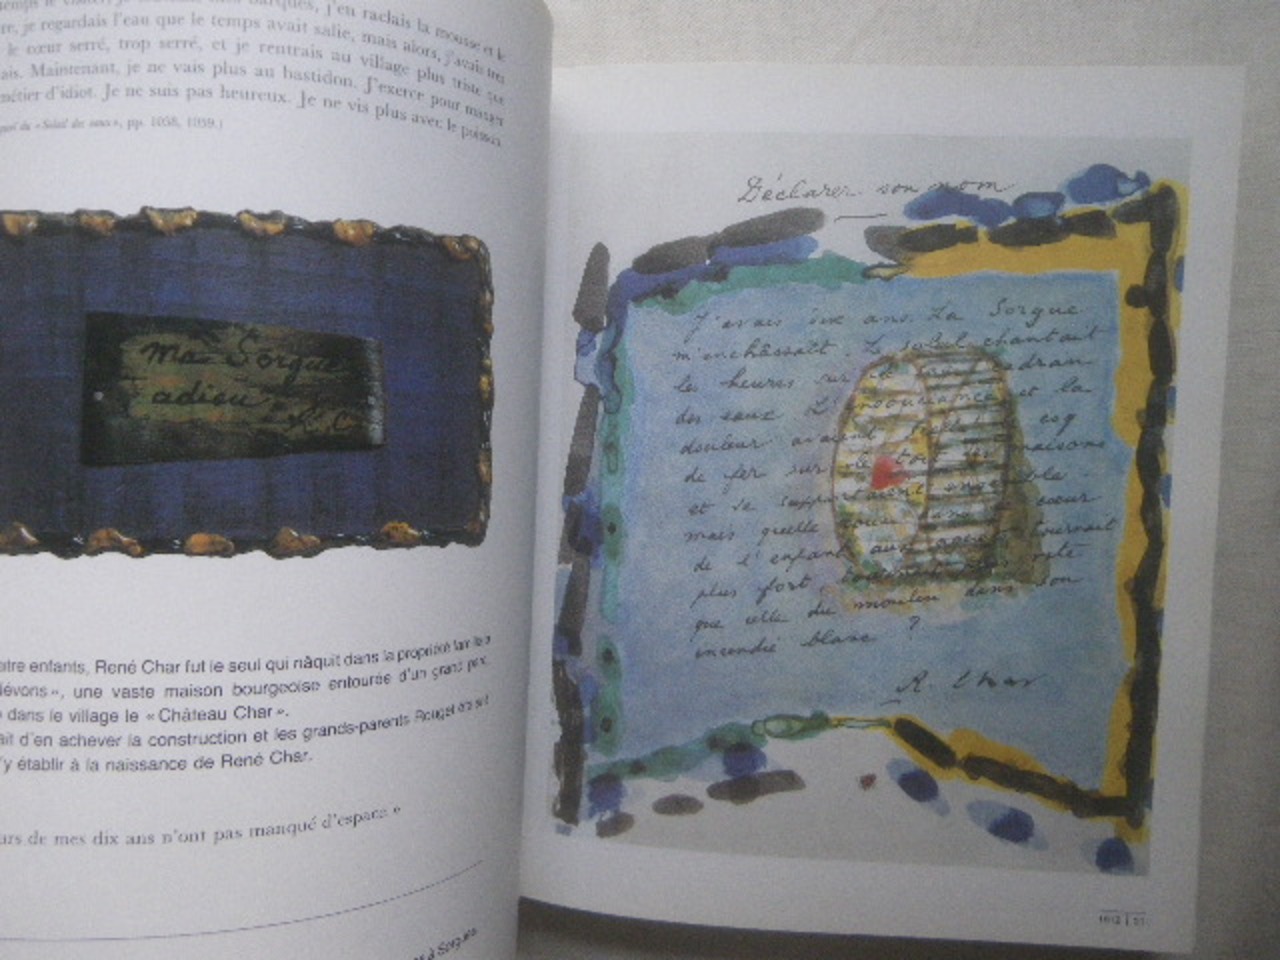 je regardais l'eau que le temps avait salie, mais alors, j'avais très
le cœur serré, trop serré, et je rentrais au village plus triste que
ais. Maintenant, je ne vais plus au bastidon. J'exerce pour manger
métier d'idiot. Je ne suis pas heureux. Je ne vis plus avec le poisson
« Soleil des eaux », pp. 1058, 1059.)
ma Sorgue
adieu
R. C.
enfants, René Char fut le seul qui nâquit dans la propriété familiale
évons », une vaste maison bourgeoise entourée d'un grand parc,
dans le village le « Château Char ».
ait d'en achever la construction et les grands-parents Rouget
y établir à la naissance de René Char.
de mes dix ans n'ont pas manqué d'espace »
à Sorgues
Déclarer son nom
J'avais dix ans. La Sorgue
m'enchâssait. Le soleil chantait
les heures sur le cadran
des eaux. L'insouciance et la
douleur avaient scellé coq
de fer sur le toit des maisons
et se supportaient ensemble.
mais quelle roue dans le cœur
de l'enfant aux aguets tournait
plus fort, tournait plus vite
que celle du moulin dans son
incendie blanc ?
R. Char